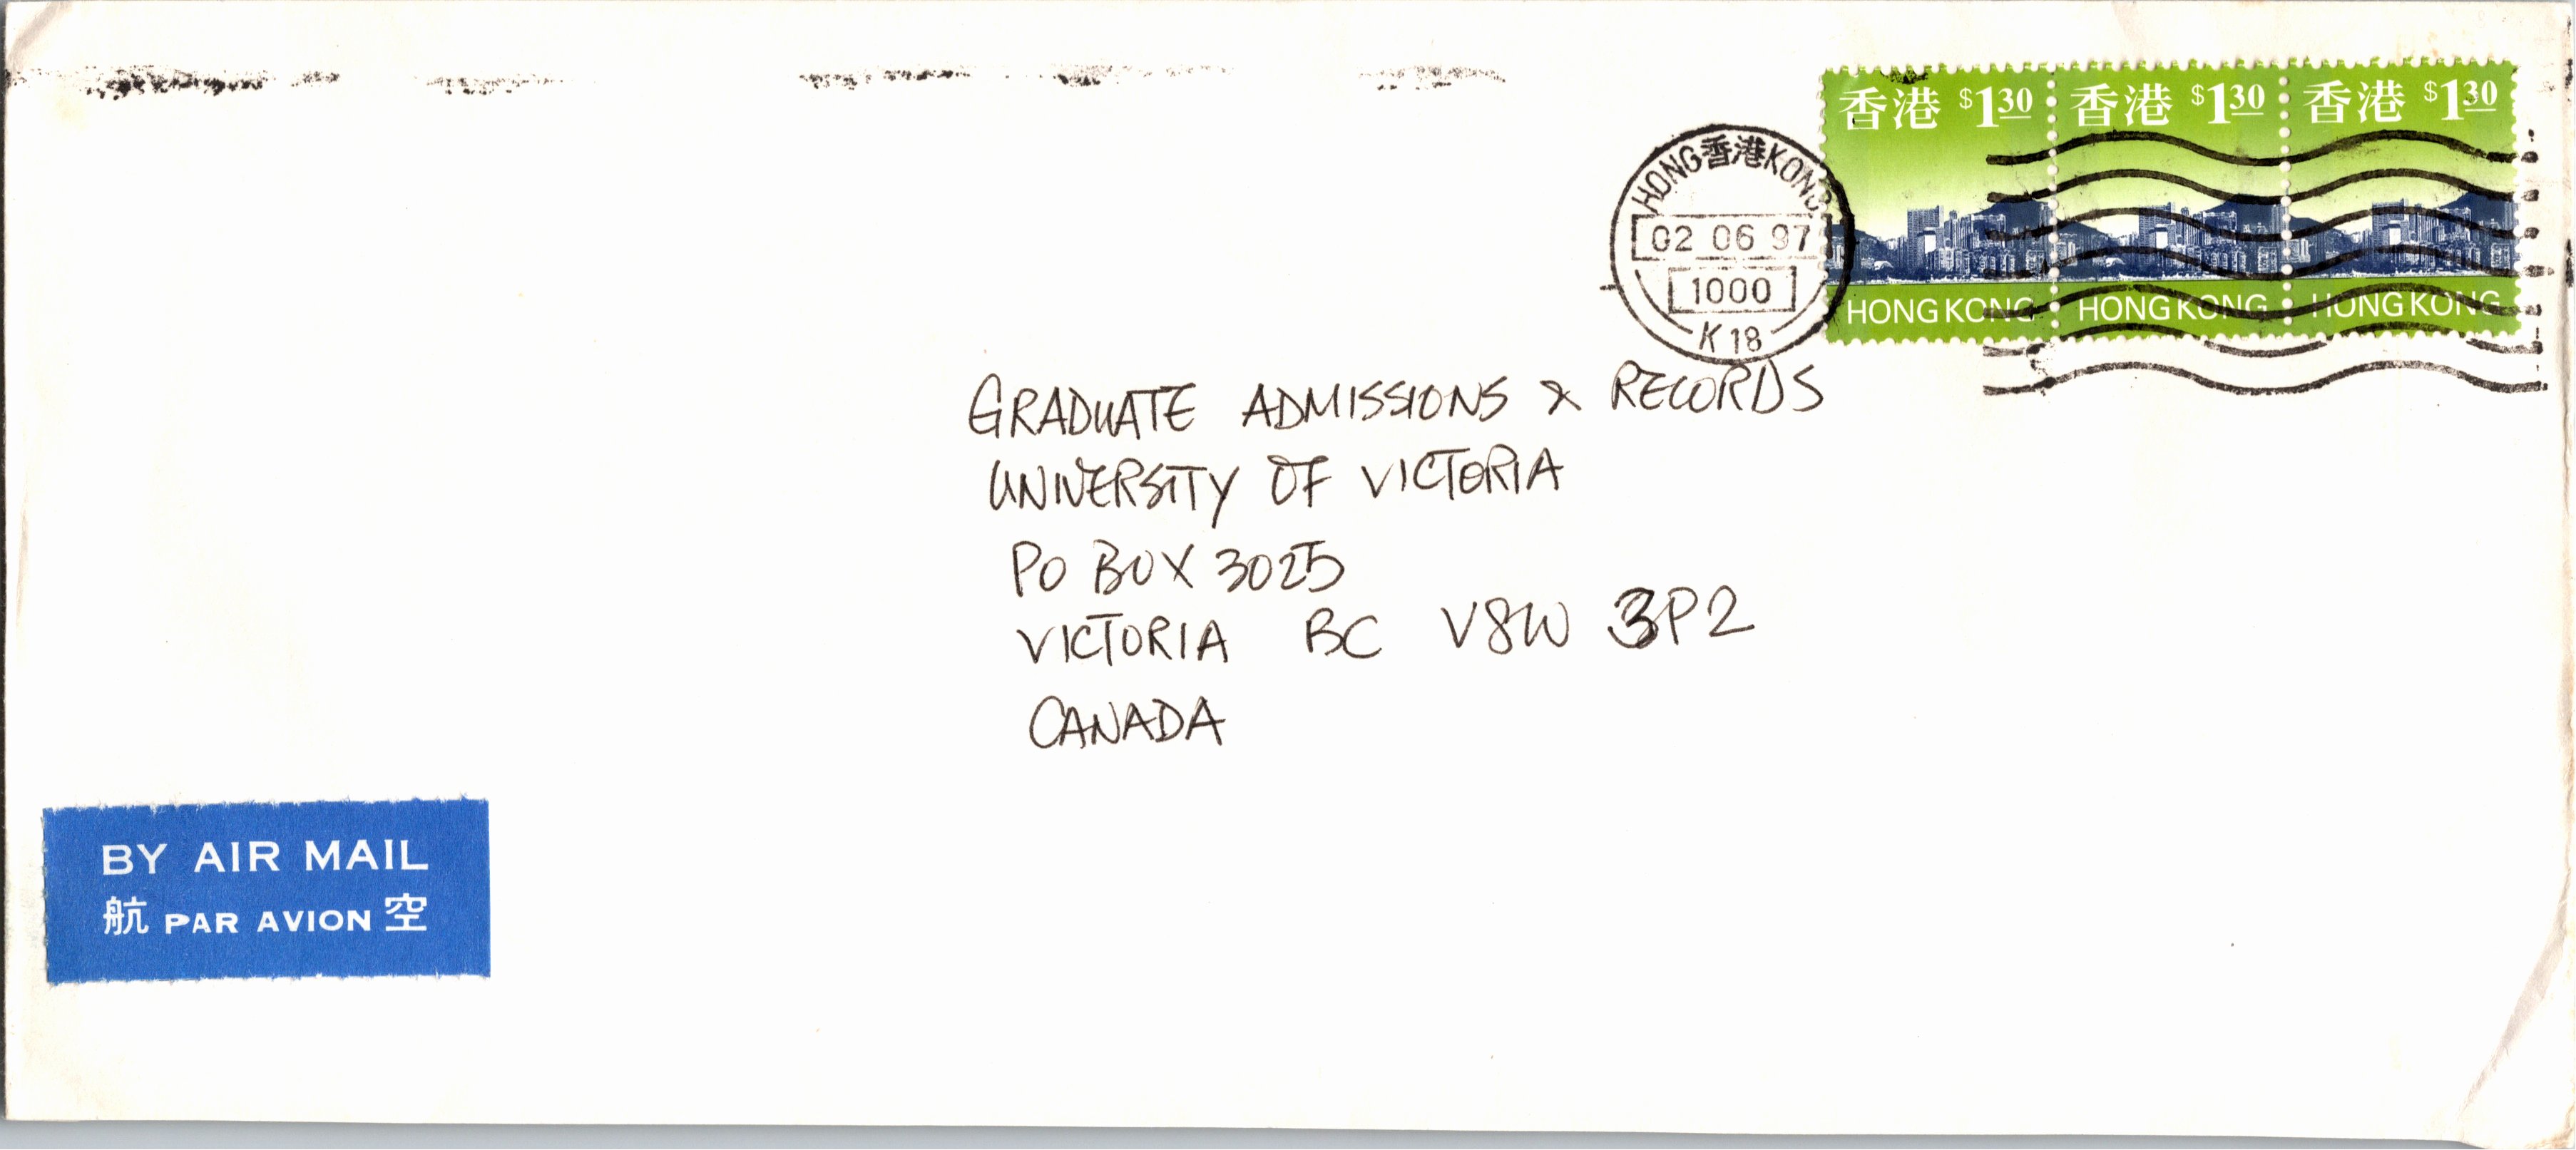 香港 $1.30 香港 $1.30 香港 $1.30
HONG KONG HONG KONG HONG KONG
HONG 香港 KONG
02 06 97
1000
K 18
GRADUATE ADMISSIONS & RECORDS
UNIVERSITY OF VICTORIA
PO BOX 3025
VICTORIA BC V8W 3P2
CANADA
BY AIR MAIL
航 PAR AVION 空